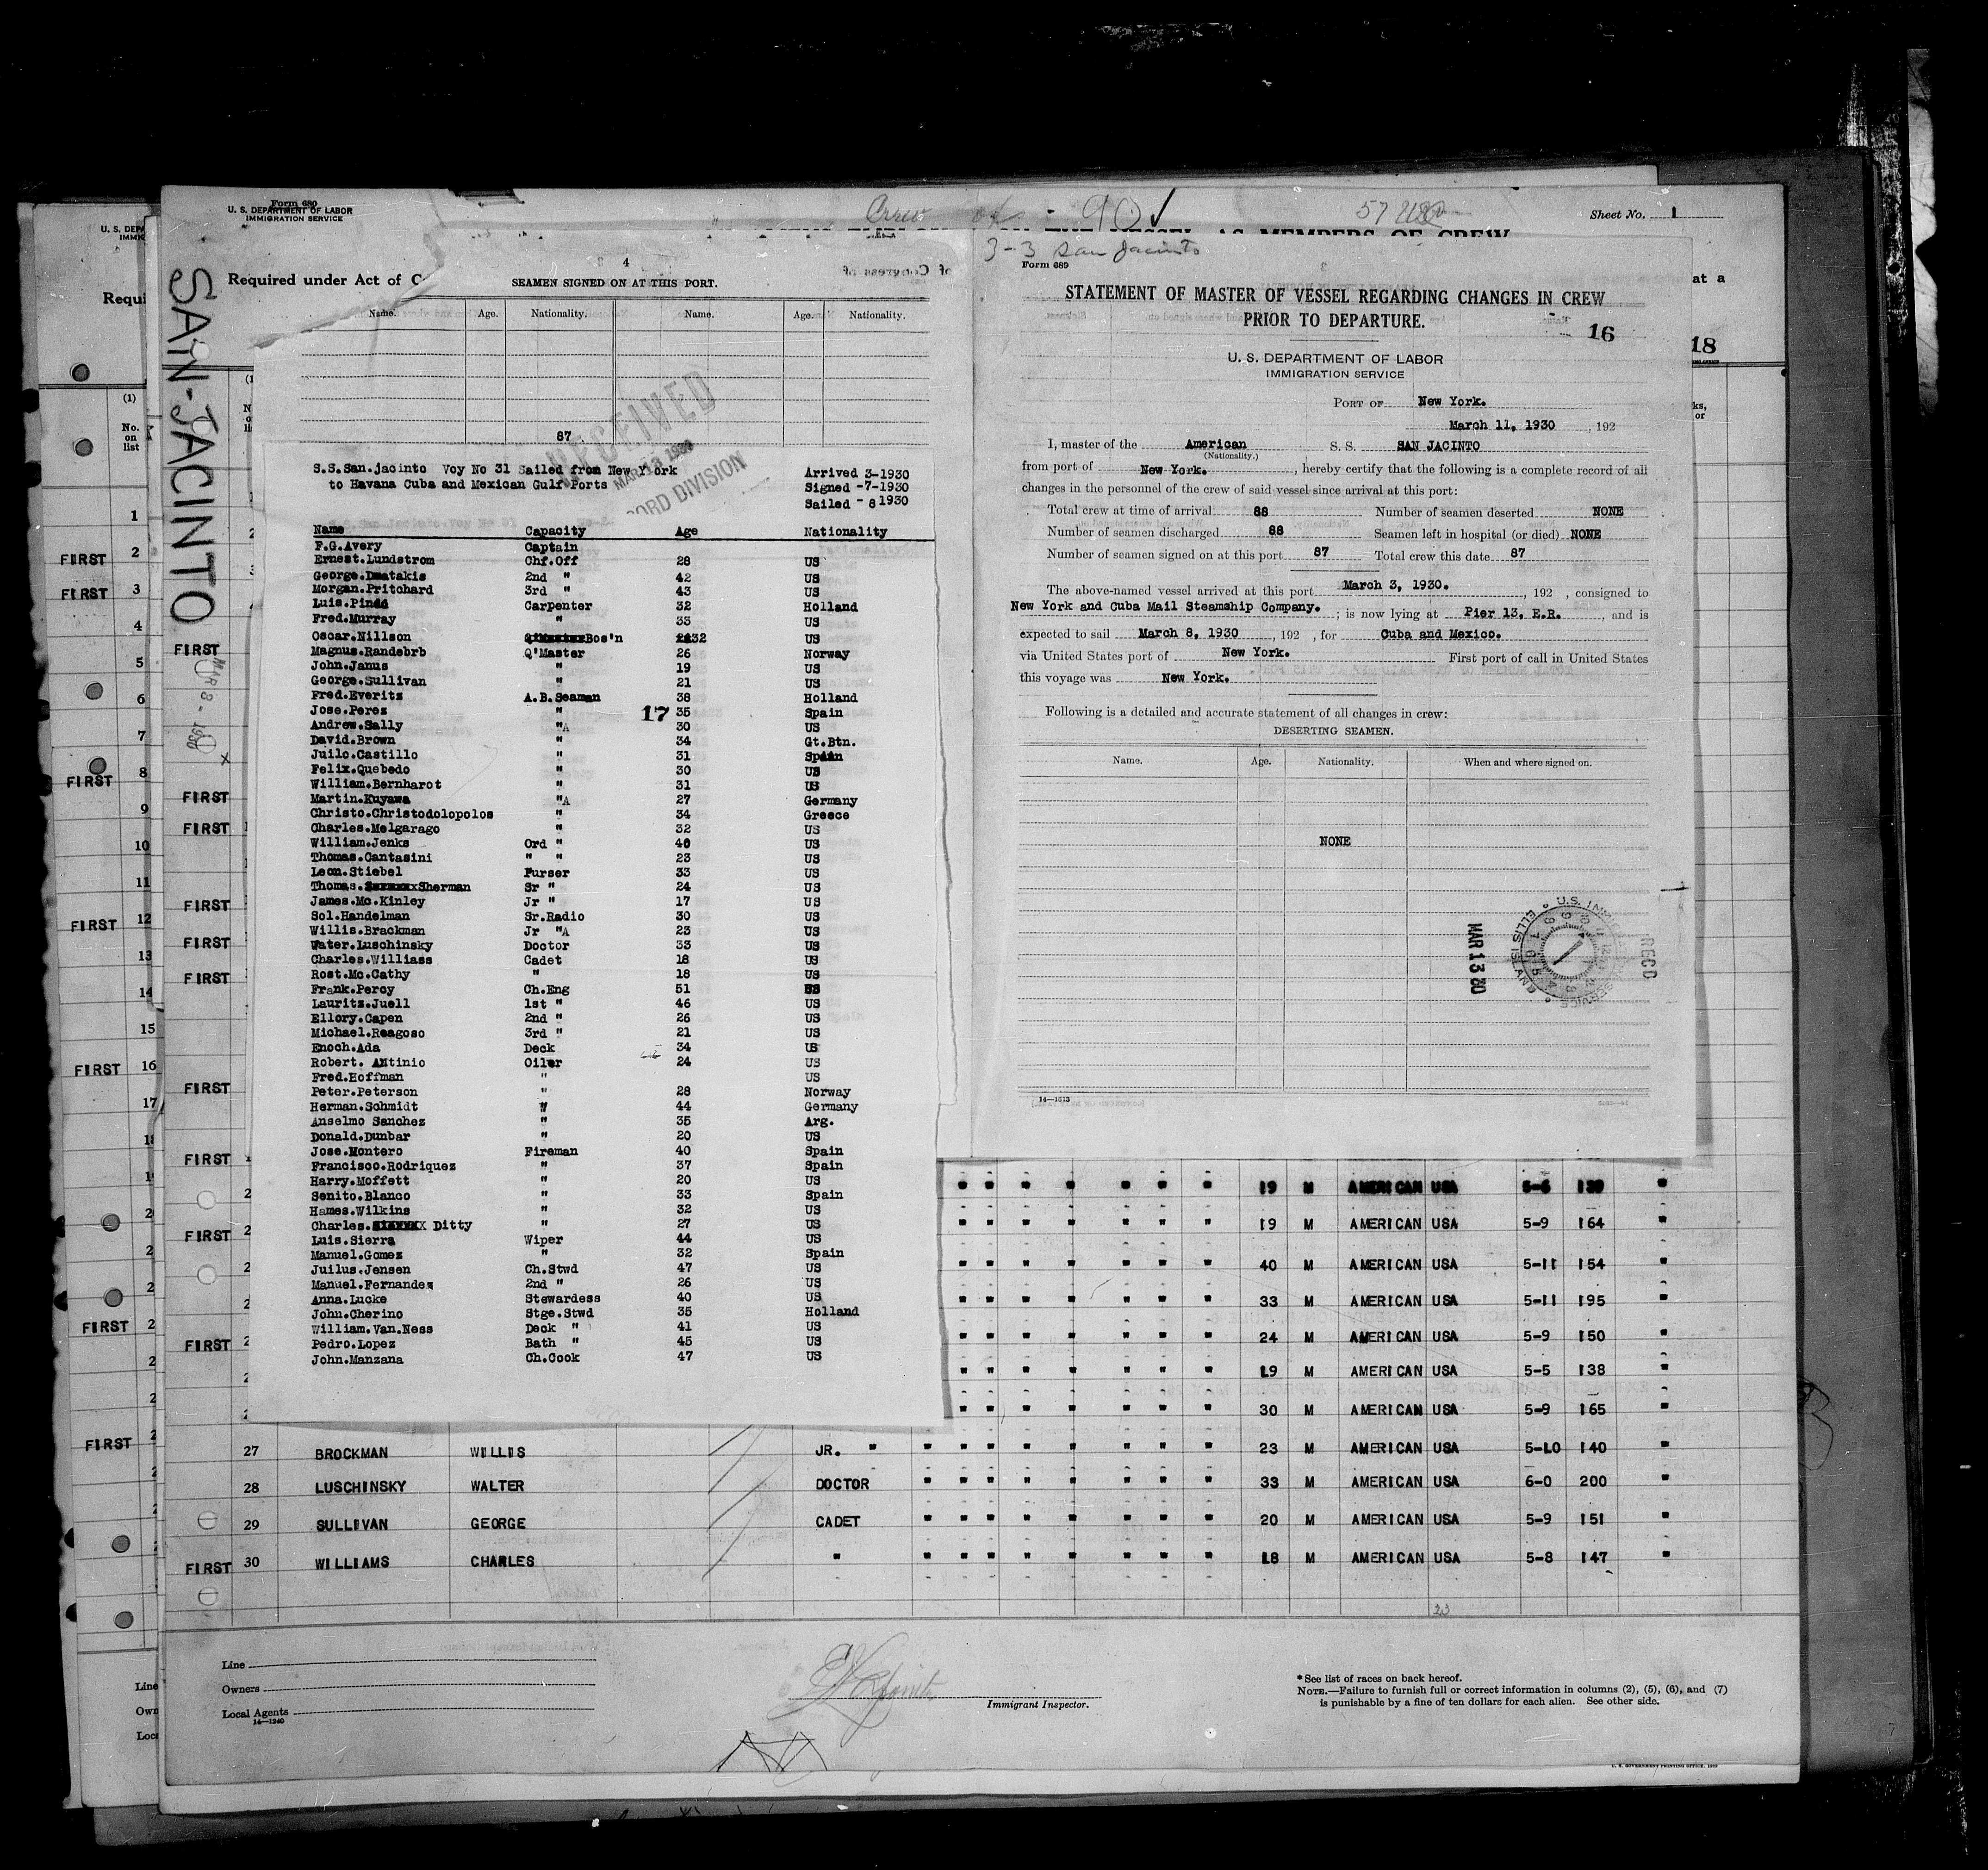 Form 689
U. S. DEPARTMENT OF LABOR
IMMIGRATION SERVICE
Crew 90 ✓
Sheet No. 1
Required under Act of
SAN-JACINTO
MAR 8 - 1930
4
SEAMEN SIGNED ON AT THIS PORT.
Name. Age. Nationality. Name. Age. Nationality.
87
RECEIVED
MAR 13 1930
RECORD DIVISION
S.S.San.jacinto Voy No 31 Sailed from New York
to Havana Cuba and Mexican Gulf Ports
Arrived 3-1930
Signed -7-1930
Sailed - 8 1930
Name Capacity Age Nationality
F.G.Avery Captain
Ernest.Lundstrom Chf.Off 28 US
George.Dmatakis 2nd " 42 US
Morgan.Pritchard 3rd " 43 US
Luis.Pindd Carpenter 32 Holland
Fred.Murray " 33 US
Oscar.Nillson Bos'n 32 US
Magnus.Randebrb Q'Master 26 Norway
John.Janus " 19 US
George.Sullivan " 21 US
Fred.Everitz A.B.Seaman 38 Holland
Jose.Perez " 17 35 Spain
Andrew.Sally "A 30 US
David.Brown " 34 Gt.Btn.
Juilo.Castillo " 31 Spain
Felix.Quebedo " 30 US
William.Bernharot " 31 US
Martin.Kuyawa "A 27 Germany
Christo.Christodolopolos " 34 Greece
Charles.Melgarago " 32 US
William.Jenks Ord " 40 US
Thomas.Cantasini " " 23 US
Leon.Stiebel Purser 33 US
Thomas.Sherman Sr " 24 US
James.Mc.Kinley Jr " 17 US
Sol.Handelman Sr.Radio 30 US
Willis.Brackman Jr "A 23 US
Water.Luschinsky Doctor 33 US
Charles.Williass Cadet 18 US
Rost.Mc.Cathy " 18 US
Frank.Percy Ch.Eng 51 US
Lauritz.Juell 1st " 46 US
Ellory.Capen 2nd " 26 US
Michael.Reagoso 3rd " 21 US
Enoch.Ada Deck 34 US
Robert. Antinio Oiler 24 US
Fred.Hoffman " US
Peter.Peterson " 28 Norway
Herman.Schmidt " 44 Germany
Anselmo Sanchez " 35 Arg.
Donald.Dunbar " 20 US
Jose.Montero Fireman 40 Spain
Francisco.Rodriquez " 37 Spain
Harry.Moffett " 20 US
Senito.Blanco " 33 Spain
Hames.Wilkins " 32 US
Charles. Ditty " 27 US
Luis.Sierra Wiper 44 US
Manuel.Gomez " 32 Spain
Juilus.Jensen Ch.Stwd 47 US
Manuel.Fernandez 2nd " 26 US
Anna.Lucke Stewardess 40 US
John.Cherino Stge.Stwd 35 Holland
William.Van.Ness Deck " 41 US
Pedro.Lopez Bath " 45 US
John.Manzana Ch.Cook 47 US
3-3 San Jacinto
Form 689
STATEMENT OF MASTER OF VESSEL REGARDING CHANGES IN CREW
PRIOR TO DEPARTURE.
16
18
U. S. DEPARTMENT OF LABOR
IMMIGRATION SERVICE
PORT OF New York.
March 11, 1930 , 192
I, master of the American S. S. SAN JACINTO
(Nationality.)
from port of New York. , hereby certify that the following is a complete record of all
changes in the personnel of the crew of said vessel since arrival at this port:
Total crew at time of arrival 88 Number of seamen deserted NONE
Number of seamen discharged 88 Seamen left in hospital (or died) NONE
Number of seamen signed on at this port 87 Total crew this date 87
The above-named vessel arrived at this port March 3, 1930. , 192 , consigned to
New York and Cuba Mail Steamship Company. ; is now lying at Pier 13, E.R. , and is
expected to sail March 8, 1930 , 192 , for Cuba and Mexico.
via United States port of New York. First port of call in United States
this voyage was New York.
Following is a detailed and accurate statement of all changes in crew:
DESERTING SEAMEN.
Name. Age. Nationality. When and where signed on.
NONE
MAR 13 30
REC'D
14—1613
19 M AMERICAN USA 5-6 139 "
19 M AMERICAN USA 5-9 164 "
40 M AMERICAN USA 5-11 154 "
33 M AMERICAN USA 5-11 195 "
24 M AMERICAN USA 5-9 150 "
19 M AMERICAN USA 5-5 138 "
30 M AMERICAN USA 5-9 165 "
27 BROCKMAN WILLIS JR. " " " " " " " " " 23 M AMERICAN USA 5-10 140 "
28 LUSCHINSKY WALTER DOCTOR " " " " " " " " 33 M AMERICAN USA 6-0 200 "
29 SULLIVAN GEORGE CADET " " " " " " " " 20 M AMERICAN USA 5-9 151 "
FIRST 30 WILLIAMS CHARLES " " " " " " " " " 18 M AMERICAN USA 5-8 147 "
Line
Owners
Local Agents
14—1240
Immigrant Inspector.
* See list of races on back hereof.
NOTE.—Failure to furnish full or correct information in columns (2), (5), (6), and (7)
is punishable by a fine of ten dollars for each alien. See other side.